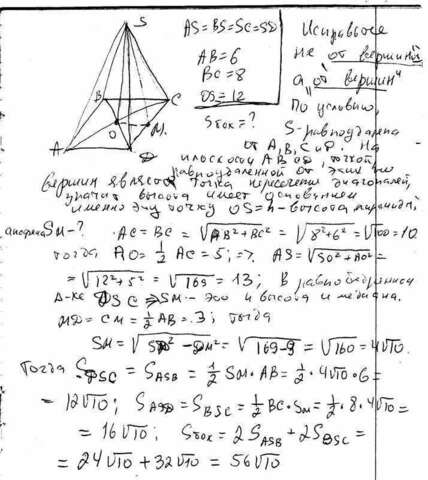 S
B
C
O
M.
A
D
AS=BS=SC=SD
AB=6
BC=8
OS=12
Sбок=?
Исправьте
не от вершины
а "от вершин"
По условию,
S-равноудалена
от A,B,C и D. На
плоскости ABCD, точкой,
равноудаленной от этих
вершин является точка пересечения диагоналей,
значит высота имеет основанием
именно эту точку OS=h-высота пирамиды,
апофема SM-? AC=BC=√AB²+BC²=√8²+6²=√100=10
тогда AO=½AC=5; => AS=√SO²+AO²=
=√12²+5²=√169=13; В равнобедренном
Δ-ке DSC => SM-это и высота и медиана.
MD=CM=½AB=3; тогда
SM=√SD²-DM²=√169-9=√160=4√10.
Тогда S DSC=S ASB=½SM·AB=½·4√10·6=
=12√10; S ASD=S BSC=½BC·SM=½·8·4√10=
=16√10; Sбок=2S ASB+2S BSC=
=24√10+32√10=56√10